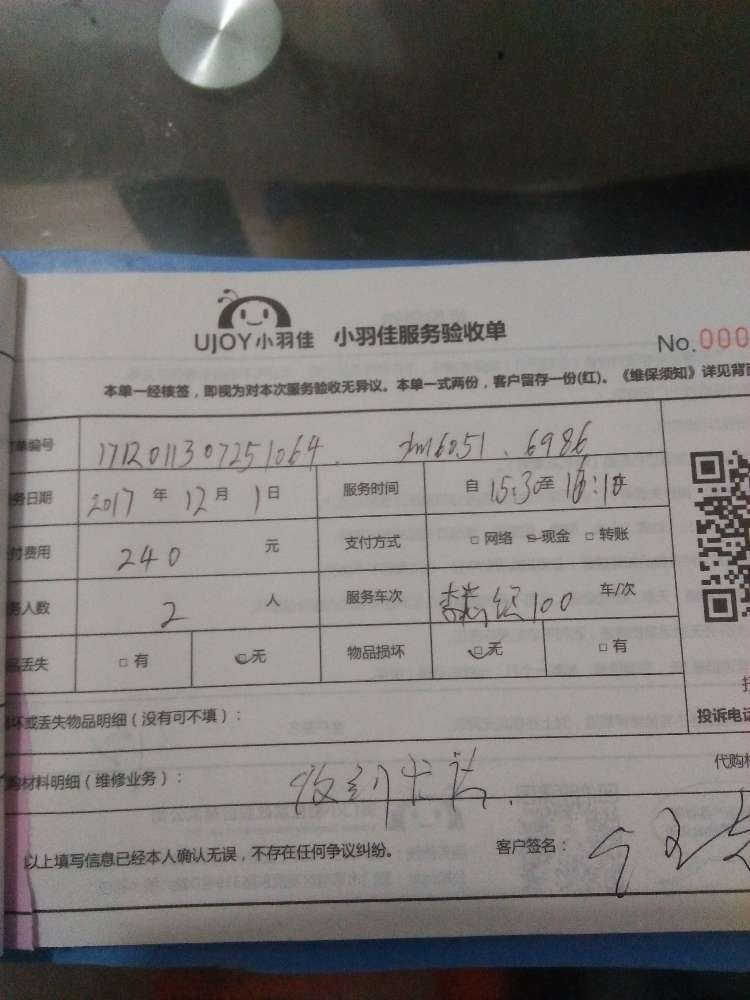 UJOY小羽佳 小羽佳服务验收单
No.000
本单一经核签，即视为对本次服务验收无异议。本单一式两份，客户留存一份(红)。《维保须知》详见背面
单编号 1712011307251064 . 6986
务日期 2017 年 12 月 1 日 服务时间 自 15:30 至 16:10
付费用 240 元 支付方式 □ 网络 □ 现金 □ 转账
务人数 2 人 服务车次 100 车/次
品丢失 □ 有 □ 无 物品损坏 □ 无 □ 有
坏或丢失物品明细（没有可不填）：
投诉电话
购材料明细（维修业务）： 收到
代购材
以上填写信息已经本人确认无误，不存在任何争议纠纷。 客户签名：